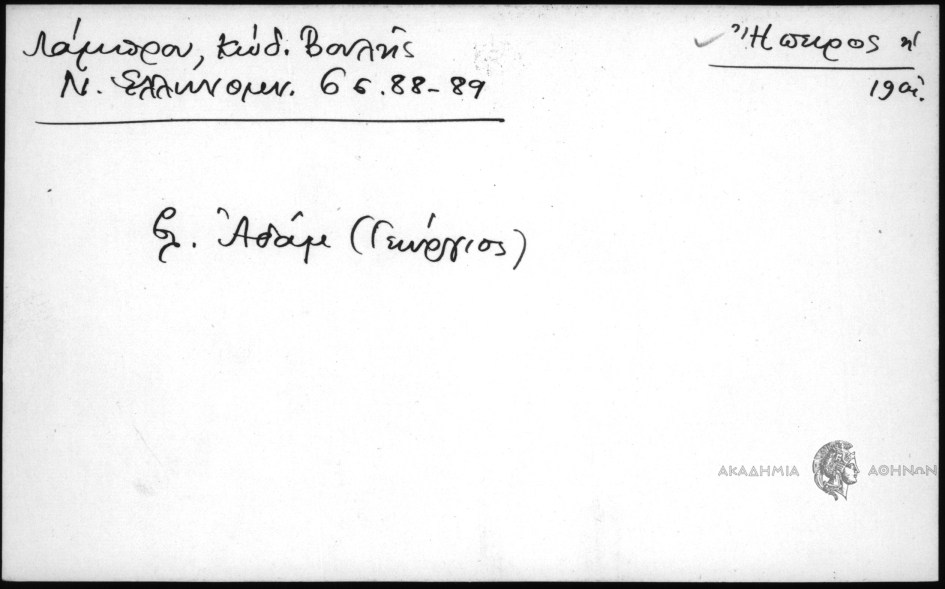 Λάμπρου, Κώδ. Βουλῆς
Ν. Ἑλληνομν. 6 σ. 88-89
Ἤπειρος
19 αἰ.
βλ. Ἀδάμ (Γεώργιος)
ΑΚΑΔΗΜΙΑ ΑΘΗΝΩΝ